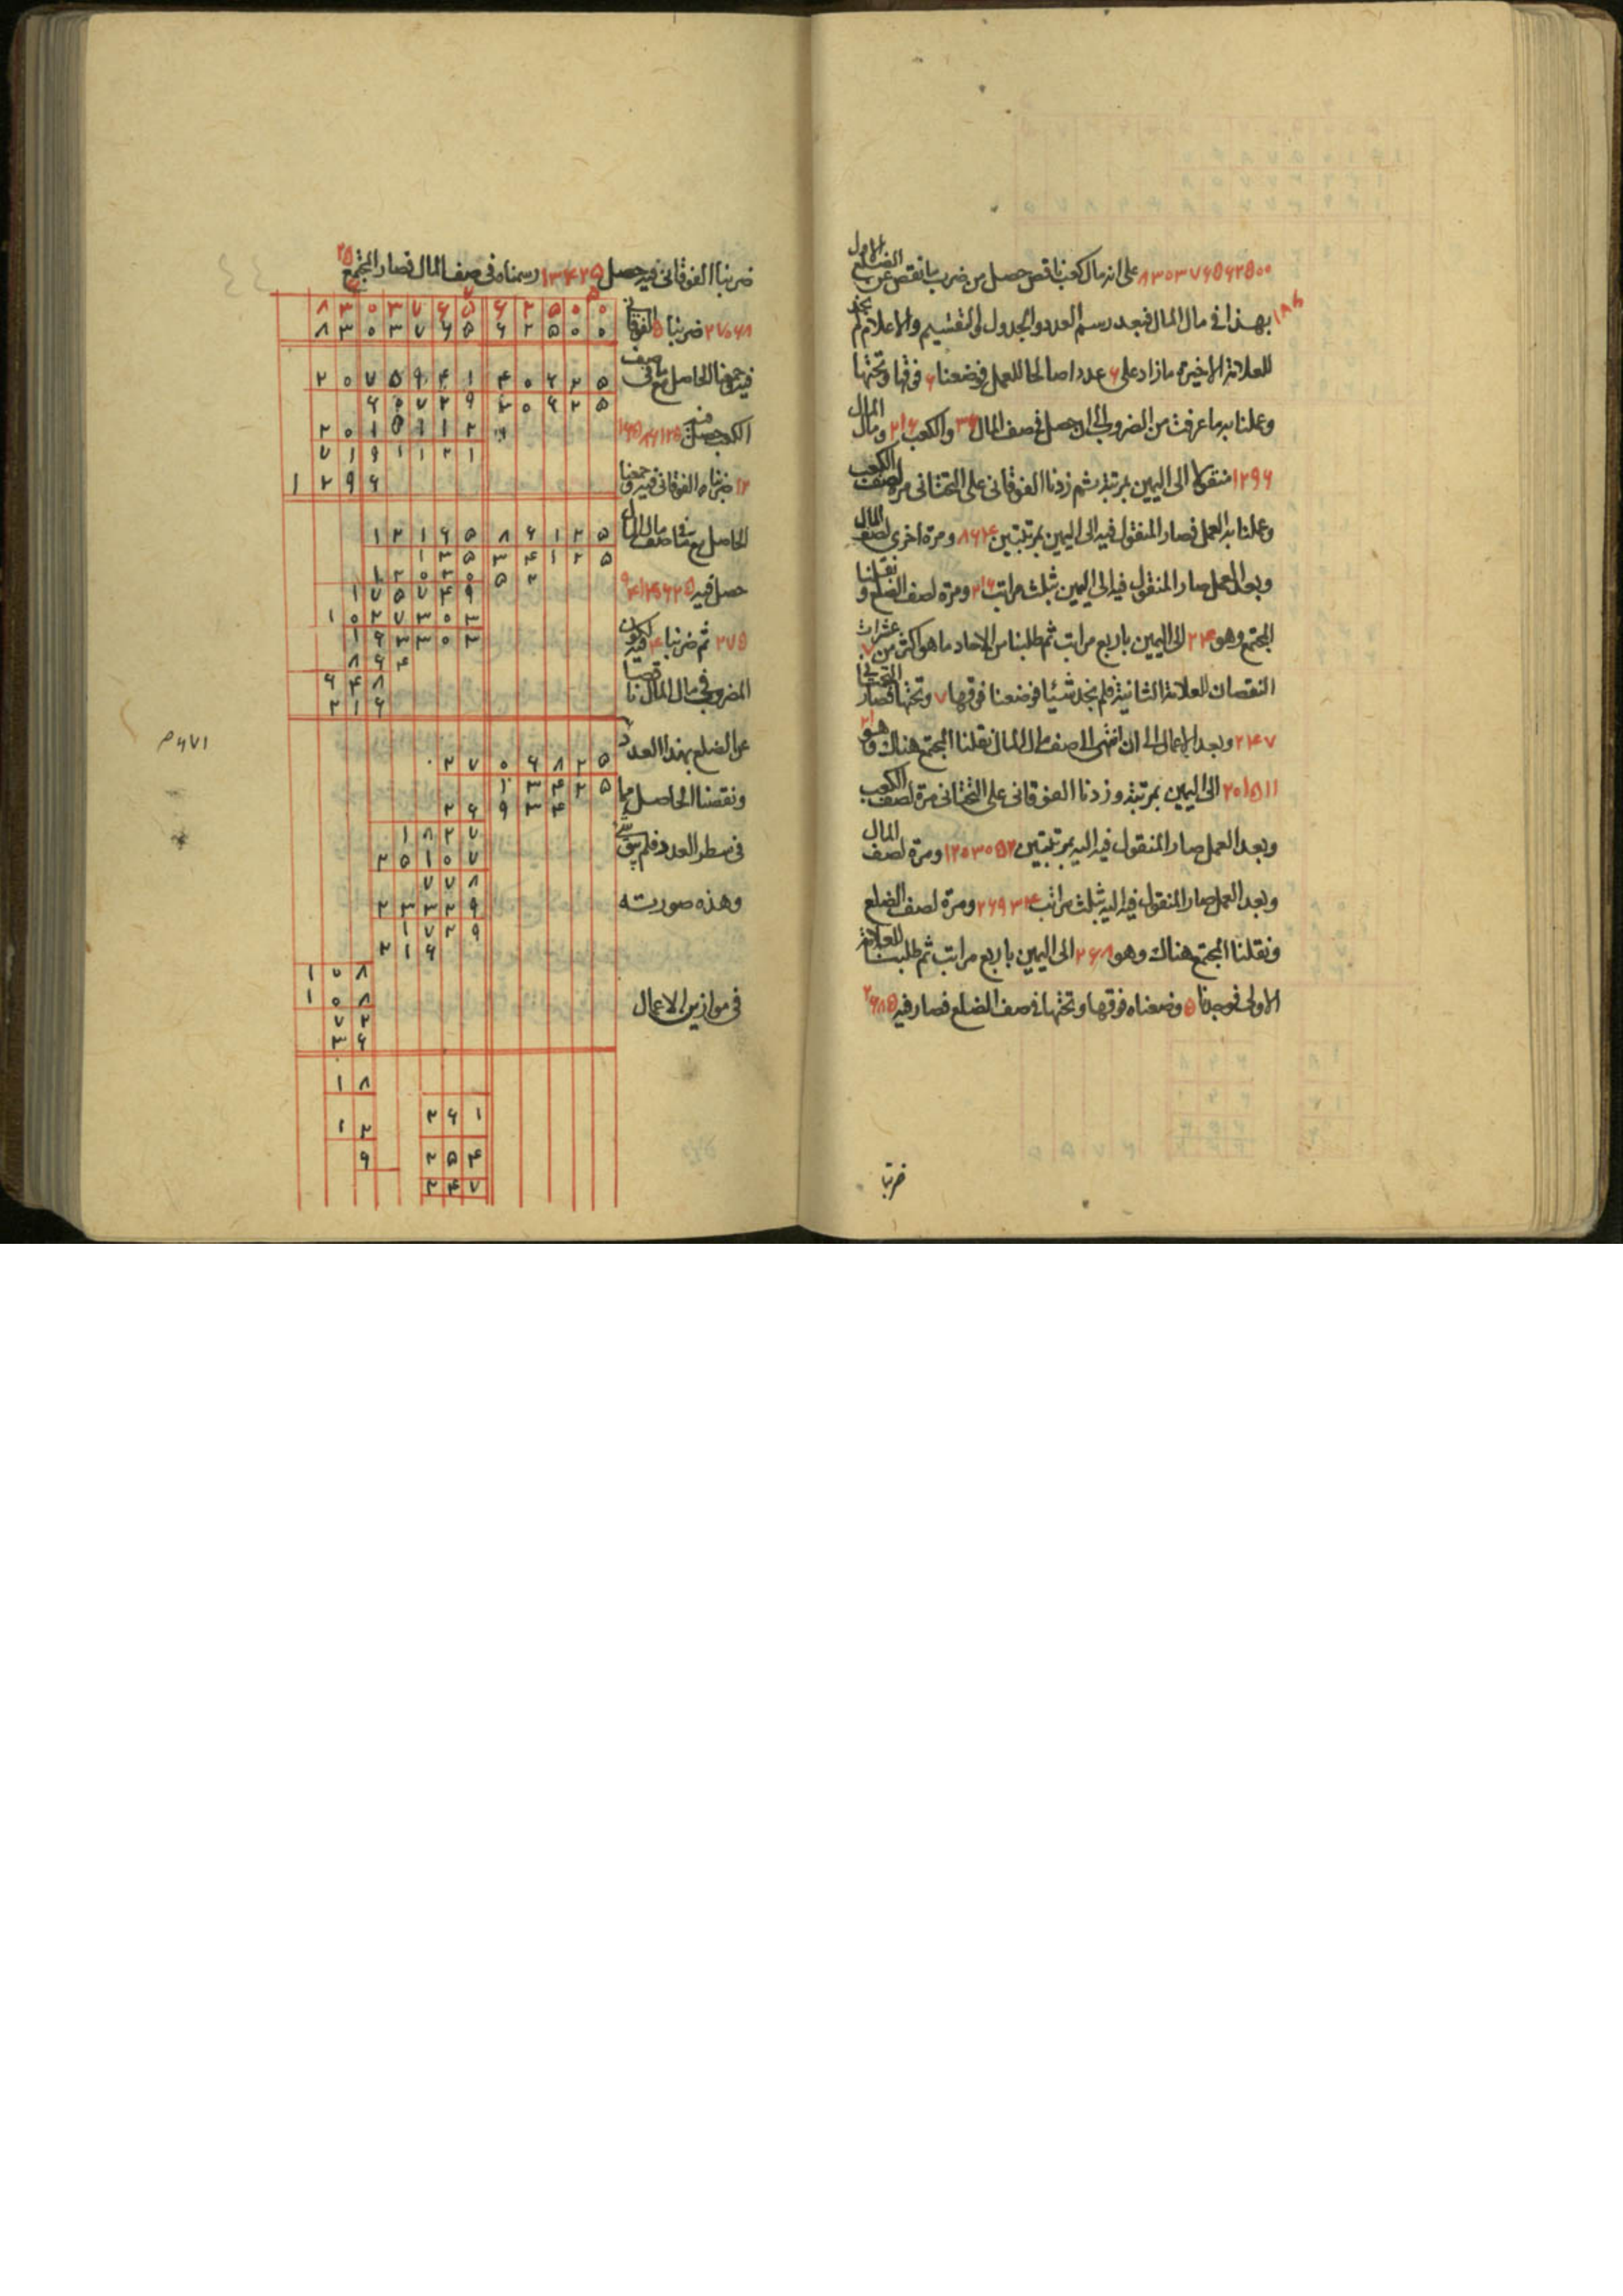 ٨٣٠٣٧٦٥٦٢٥٠٠ على انه مال كعب ناقص حصل من ضرب ما نقص عن الضلع الاول
١٨٦
بهذا فى مال المال فبعد رسم العدد والجدول الى التقسيم والاعلام لم نجد
للعلامة الاخيرة ما زاد على ٦ عددا صالحا للعمل فوضعنا ٦ فوقها وتحتها
وعملنا به ما عرفت من الضروب الى ان حصل فى صف المال ٣٦ والكعب ٢١٦ ومال المال
١٢٩٦ منقولا الى اليمين بمرتبة ثم زدنا الفوقانى على التحتانى مرة لصف الكعب
وعملنا به العمل فصار المنقول فيه الى اليمين بمرتبتين ٨٦٤ ومرة اخرى لصف المال
وبعد العمل صار المنقول فيه الى اليمين بثلث مراتب ٢١٦ ومرة لصف الضلع ونقلنا
المجتمع وهو ٢٤ الى اليمين باربع مراتب ثم طلبنا من الاحاد ما هو اكثر من ٧ عشرات
النقصان للعلامة الثانية فلم نجد شيئا فوضعنا فوقها ٧ وتحتها فصار التحتانى
٢٤٧ وبعد الاعمال الى ان انتهى الى صف مال المال نقلنا المجتمع هناك وهو
٢٠١٥١١ الى اليمين بمرتبة وزدنا الفوقانى على التحتانى مرة لصف الكعب
وبعد العمل صار المنقول فيه اليه بمرتبتين ١٢٠٣٠٥٢ ومرة لصف المال
وبعد العمل صار المنقول فيه اليه بثلث مراتب ٢٦٩٣٤ ومرة لصف الضلع
ونقلنا المجتمع هناك وهو ٢٦٨ الى اليمين باربع مراتب ثم طلبنا للعلامة
الاولى فوجدنا ٥ وضعناه فوقها وتحتها فى صف الضلع فصار فيه ٢٦٨٥
ضربنا
ضربنا الفوقانى فيه حصل ١٣٤٢٥ رسمناه فى صف المال فصار المجتمع ٢٥
٢٧٠٦٨ ضربنا ٥ الفوقانى
فيه وجمعنا الحاصل مع ما فى صف
الكعب حصل فيه
١٢ ضربناه الفوقانى فيه وجمعنا
الحاصل مع ما فى صف مال المال
حصل فيه
٢٧٥ ثم ضربنا فيه
المضروب فى مال المال
عن الضلع بهذا العدد
ونقصنا الحاصل مما
فى سطر العدد فلم يبق شى
وهذه صورته
فى موازين الاعمال
٨ ٣ ٠ ٣ ٧ ٦ ٥ ٦ ٢ ٥ ٠ ٠
٨ ٣ ٠ ٣ ٧ ٦ ٥ ٦ ٢ ٥ ٠ ٠
٢ ٠ ٧ ٥ ٩ ٤ ١ ٤ ٠ ٦ ٢ ٥
٦ ٠ ٧ ٢ ٩ ٣ ٠ ٦ ٢ ٥
٢ ٠ ١ ٥ ١ ١ ٢
٧ ١ ٩ ١ ١ ٢ ١
١ ٢ ٩ ٦
١ ٢ ١ ٦ ٥ ٨ ٦ ١ ٢ ٥
١ ٣ ٥ ٣ ٤ ١ ٢ ٥
١ ٢ ٠ ٣ ٠ ٥ ٢
١ ٧ ٥ ٧ ٤ ٩
١ ٠ ٢ ٧ ٣ ٠ ٣
١ ٦ ٣ ٣ ٠ ٣
٨ ٦ ٤
٦ ٤ ٨
٢ ١ ٦
٢ ٧ ٠ ٦ ٨ ٢ ٥
١ ٣ ٤ ٢ ٥
٢ ٦ ٩ ٣ ٤
١ ٨ ٢ ٧
٢ ٥ ١ ٠ ٧
٧ ٧ ٨
٢ ٣ ٣ ٢ ٩
١ ٧ ٢ ٩
٢ ١ ٦
١ ٠ ٨
١ ٠ ٨
٧ ٢
٣ ٦
١ ٨
٢ ٦ ١
١ ٢
٢ ٥ ٤
٩
٢ ٤ ٧
٦٧١ م